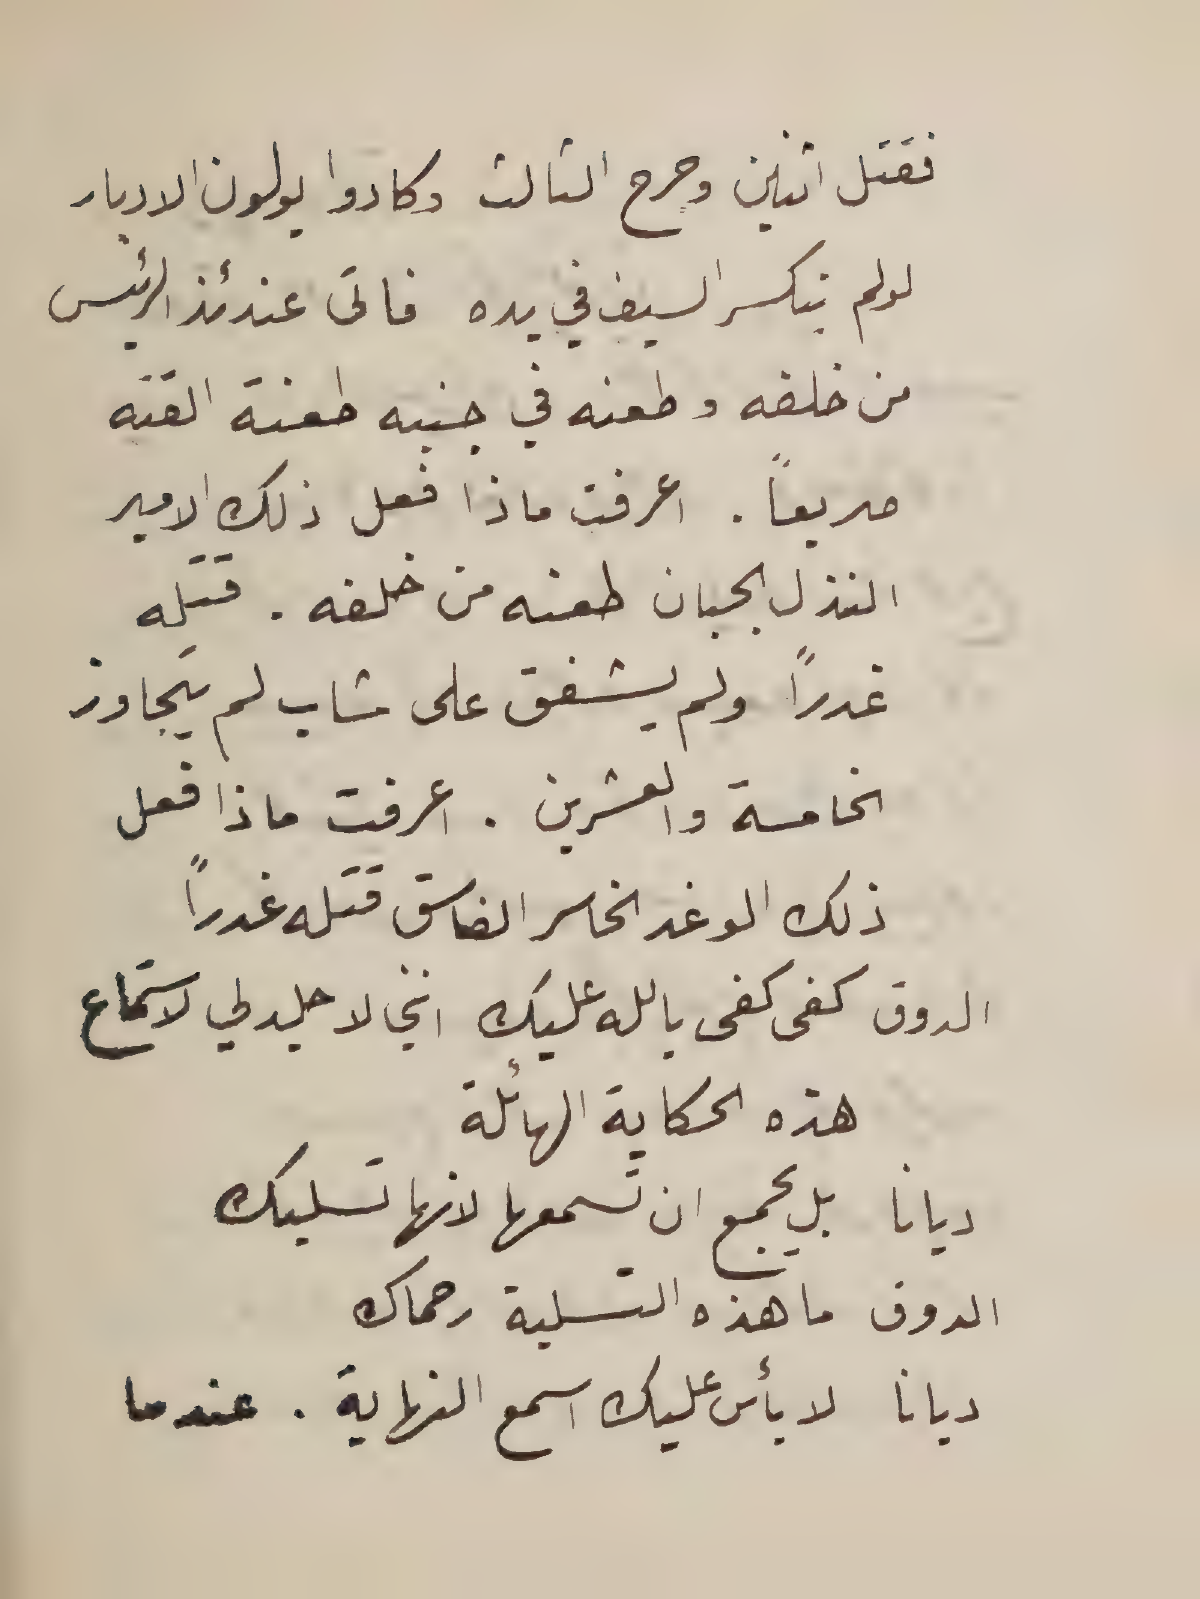 فقتل اثنين وجرح الثالث وكادوا يولون الادبار
لولم ينكسر السيف في يده فاتى عندئذ الرئيس
من خلفه وطعنه في جنبه طعنة القته
صريعاً . اعرفت ماذا فعل ذلك الامير
النذل الجبان طعنه من خلفه . قتله
غدراً ولم يشفق على شاب لم يتجاوز
الخامسة والعشرين . اعرفت ماذا فعل
ذلك الوغد الخاسر الفاسق قتله غدراً
الدوق كفى كفى بالله عليك انني لا جلد لي لاستماع
هذه الحكاية الهائلة
ديانا بل يجب ان تسمعها لانها تسليك
الدوق ما هذه التسلية رحماك
ديانا لا بأس عليك اسمع النهاية . عندما